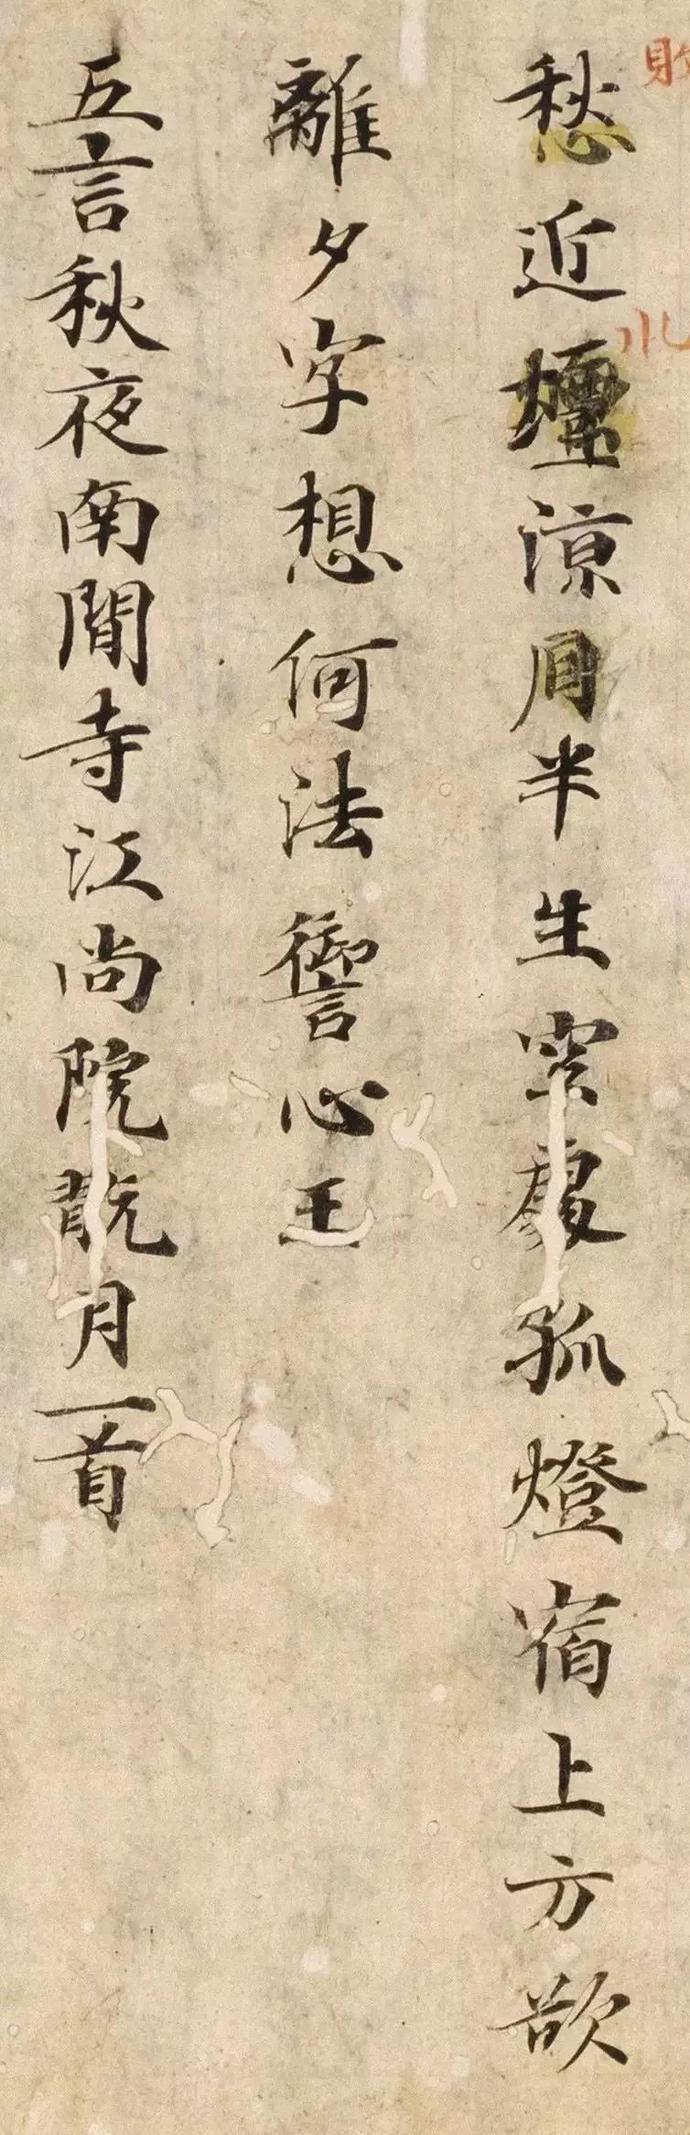 愁近涼半生空處孤燈宿上方欲
離夕字想何法心王
五言秋夜南閒寺江尚院翫月一首